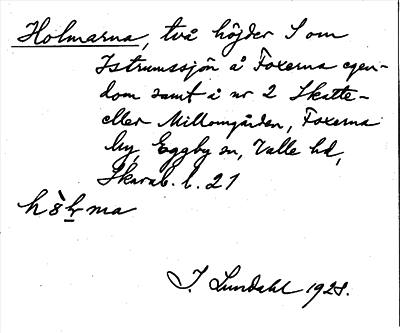 Holmarna, två höjder S om
Istrumssjön å Foxerna egen-
dom samt å nr 2 Skatte-
eller Millomgården, Foxerna
by, Eggby sn, Valle hd,
Skarab. l. 21
ma
J. Lundahl 1928.